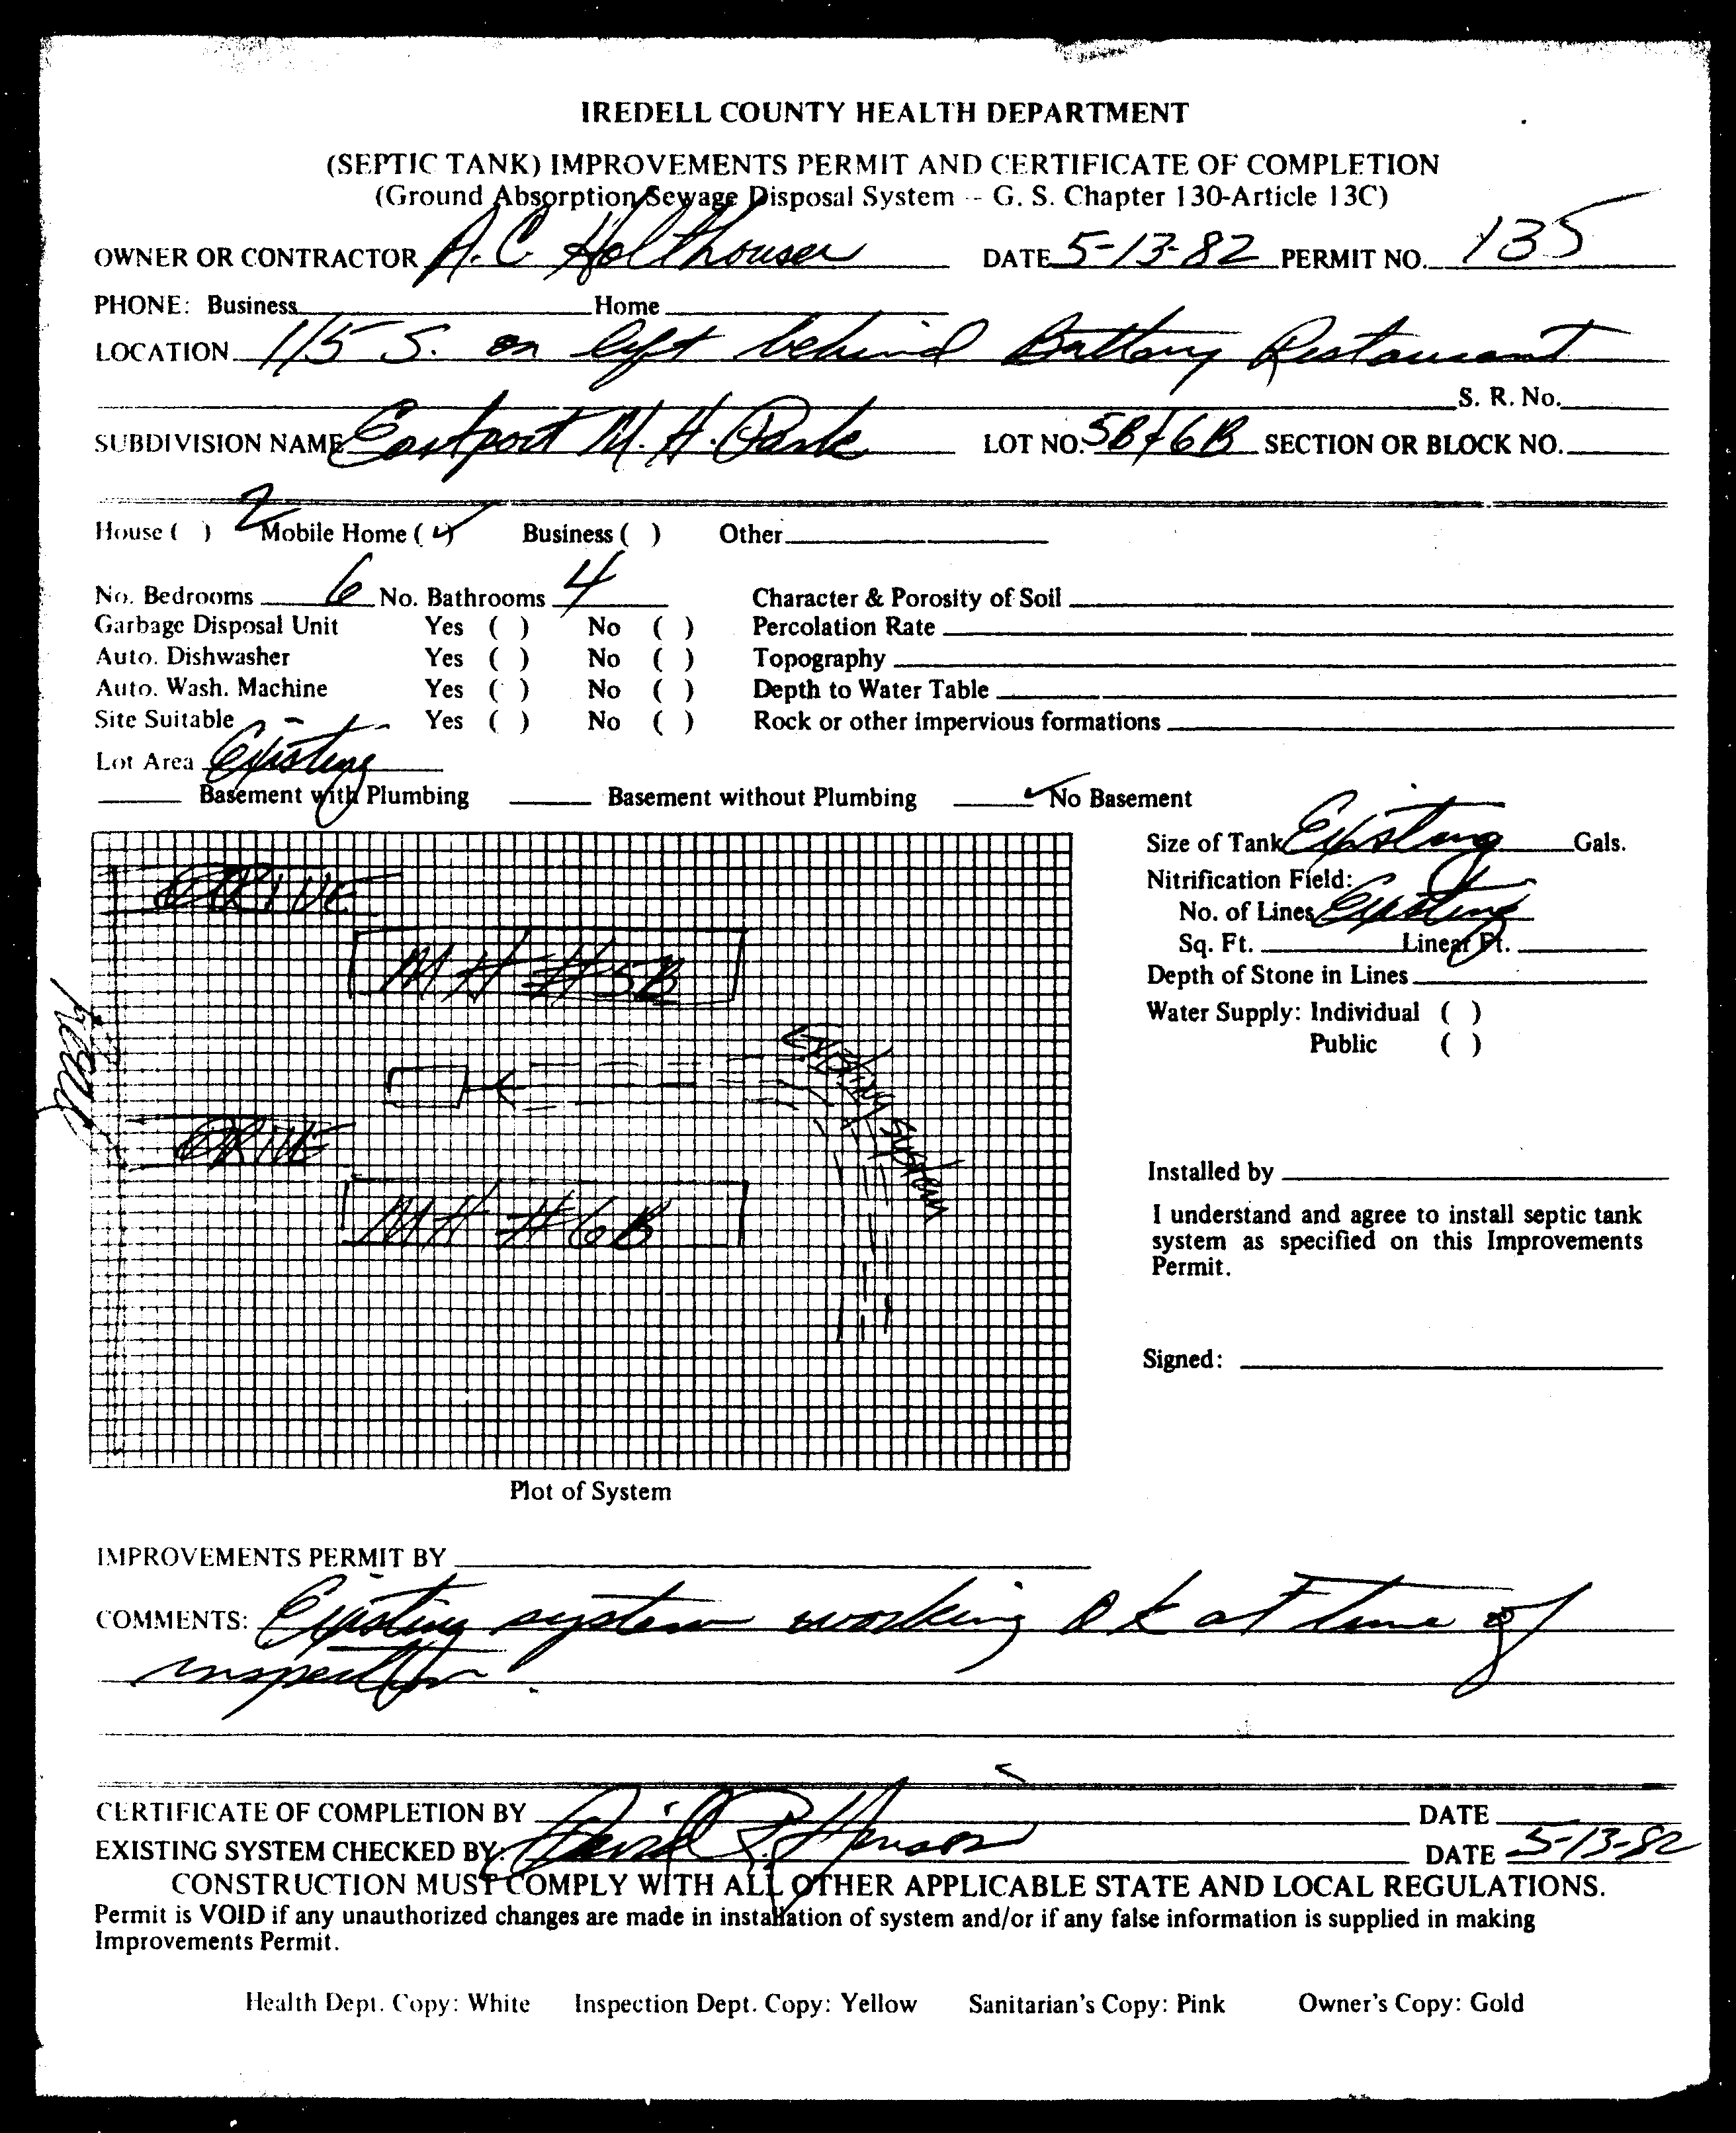 IREDELL COUNTY HEALTH DEPARTMENT
(SEPTIC TANK) IMPROVEMENTS PERMIT AND CERTIFICATE OF COMPLETION
(Ground Absorption Sewage Disposal System -- G. S. Chapter 130-Article 13C)
OWNER OR CONTRACTOR A.C. Holthouser DATE 5-13-82 PERMIT NO. 135
PHONE: Business Home
LOCATION 115 S. on left behind Battery Restaurant
S. R. No.
SUBDIVISION NAME Eastport M.H. Park LOT NO. 5B & 6B SECTION OR BLOCK NO.
House ( ) 2 Mobile Home (✓) Business ( ) Other
No. Bedrooms 6 No. Bathrooms 4 Character & Porosity of Soil
Garbage Disposal Unit Yes ( ) No ( ) Percolation Rate
Auto. Dishwasher Yes ( ) No ( ) Topography
Auto. Wash. Machine Yes ( ) No ( ) Depth to Water Table
Site Suitable Yes ( ) No ( ) Rock or other impervious formations
Lot Area Existing
Basement with Plumbing Basement without Plumbing ✓ No Basement
Size of Tank Existing Gals.
Nitrification Field:
No. of Lines Existing
Sq. Ft. Linear Ft.
Depth of Stone in Lines
Water Supply: Individual ( )
Public ( )
DRIVE
MH #5B
Existing system
DRIVE
MH #6B
Installed by
I understand and agree to install septic tank
system as specified on this Improvements
Permit.
Signed:
Plot of System
IMPROVEMENTS PERMIT BY
COMMENTS: Existing system working OK at time of
inspection.
CERTIFICATE OF COMPLETION BY DATE
EXISTING SYSTEM CHECKED BY: David P. Henson DATE 5-13-82
CONSTRUCTION MUST COMPLY WITH ALL OTHER APPLICABLE STATE AND LOCAL REGULATIONS.
Permit is VOID if any unauthorized changes are made in installation of system and/or if any false information is supplied in making
Improvements Permit.
Health Dept. Copy: White Inspection Dept. Copy: Yellow Sanitarian's Copy: Pink Owner's Copy: Gold